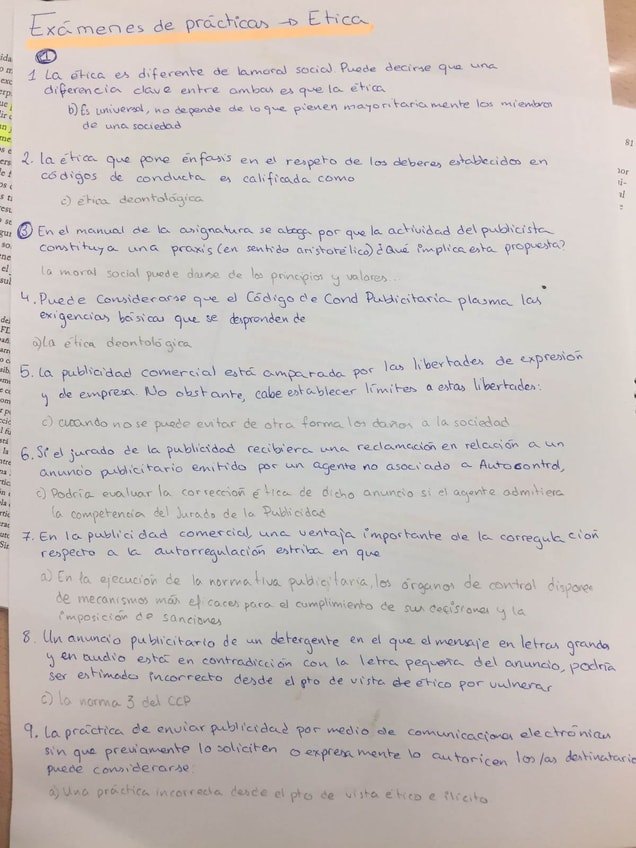 Exámenes de prácticas → Etica
1
1 La ética es diferente de lamoral social. Puede decirse que una
diferencia clave entre ambas es que la ética
b) Es universal, no depende de lo que pienen mayoritariamente los miembros
de una sociedad
2. La ética que pone énfasis en el respeto de los deberes establecidos en
códigos de conducta es calificada como
c) ética deontológica
3 En el manual de la asignatura se aboga por que la actividad del publicista
constituya una praxis (en sentido aristotélico) ¿Qué implica esta propuesta?
la moral social puede darse de los principios y valores...
4. Puede considerarse que el Código de Cond Publicitaria plasma las
exigencias básicas que se desprenden de
a) La ética deontológica
5. La publicidad comercial está amparada por las libertades de expresión
y de empresa. No obstante, cabe establecer límites a estas libertades:
c) cuando no se puede evitar de otra forma los daños a la sociedad
6. Si el jurado de la publicidad recibiera una reclamación en relación a un
anuncio publicitario emitido por un agente no asociado a Autocontrol,
c) Podría evaluar la corrección ética de dicho anuncio si el agente admitiera
la competencia del Jurado de la Publicidad
7. En la publicidad comercial, una ventaja importante de la corregulación
respecto a la autorregulación estriba en que
a) En la ejecución de la normativa publicitaria, los órganos de control disponen
de mecanismos más eficaces para el cumplimiento de sus decisiones y la
imposición de sanciones
8. Un anuncio publicitario de un detergente en el que el mensaje en letras grandes
y en audio está en contradicción con la letra pequeña del anuncio, podría
ser estimado incorrecto desde el pto de vista ético por vulnerar
c) la norma 3 del CCP
9. La práctica de enviar publicidad por medio de comunicaciones electrónicas
sin que previamente lo soliciten o expresamente lo autoricen los/as destinatario
puede considerarse:
a) Una práctica incorrecta desde el pto de vista ético e ilícita
81